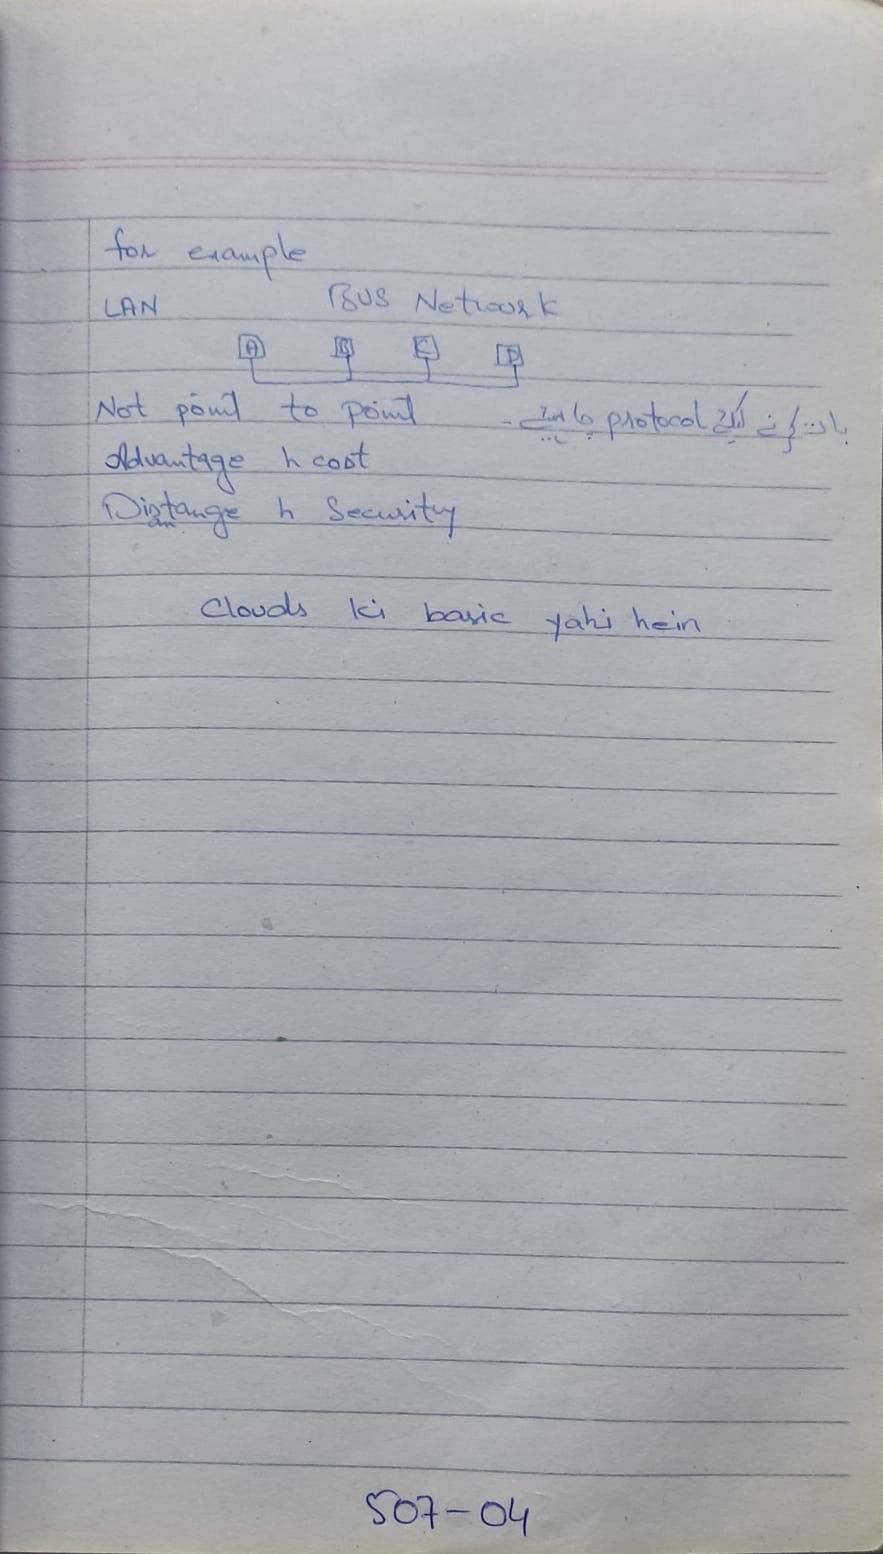 for example
LAN BUS Network
A B C D
Not point to point بات کرنے کیلئے protocol چاہیئے۔
Advantage h cost
Distange h Security
an
Clouds ki basic yahi hein
507-04